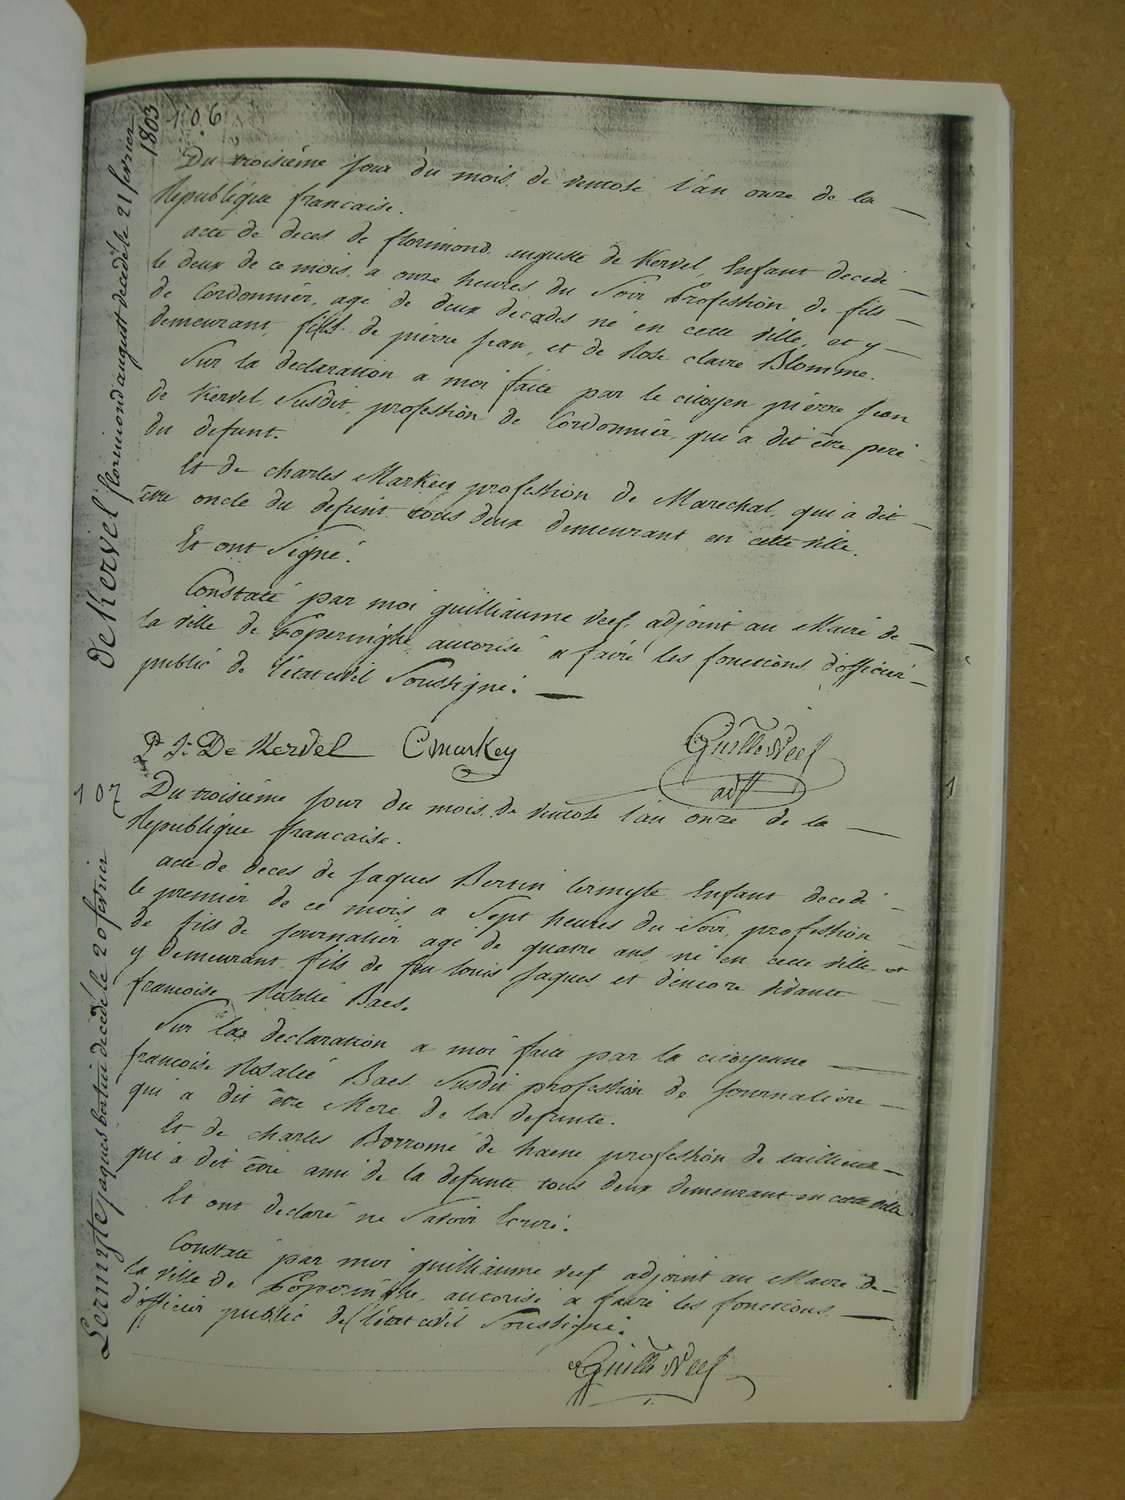 1803
106
deKervel florimond august decédé le 21 fevrier
Du troisiéme jour du mois de ventose l'an onze de la
Republique francaise.
acte de deces de florimond auguste de Kervel, Enfant decedé
le deux de ce mois, a onze heures du Soir Profession de fils
de Cordonnier, agé de deux decades né en cette ville, et y
demeurant, fils de pierre jean, et de Rose claire Blomme.
Sur la declaration a moi faite par le citoyen pierre jean
de Kervel Susdit, profession de Cordonnier, qui a dit être pere
du defunt.
Et de charles Markey profession de Marechal, qui a dit
être oncle du defunt tous deux demeurant en cette ville.
Et ont Signé.
Constaté par moi guilliaume neef, adjoint au Maire de
la ville de Poperinghe, autorisé a faire les fonctions d'officier
public de l'état civil Soussigné.
Pr Jn De Kervel CMarKey Guille Neef
adjt
107
Lermyte jaques bertin decédé le 20 fevrier
Du troisiéme jour du mois de ventose l'an onze de la
Republique francaise.
acte de deces de Jaques Bertin Lermyte, Enfant decedé
le premier de ce mois, a Sept heures du Soir, profession
de fils de journalier agé de quatre ans, né en cette ville et
y demeurant, fils de feu louis Jaques et d'encore vivante
francoise Rosalie Baes.
Sur la declaration a moi faite par la citoyenne
francoise Rosalie Baes Susdit profession de journaliere
qui a dit être Mere de la defunte.
Et de charles Borromé de haene profession de tailleur
qui a dit être ami de la defunte tous deux demeurant en cette ville
Et ont declaré ne Savoir Ecrire.
Constaté par moi guilliaume neef adjoint au Maire de
la ville de Poperinghe, autorisé a faire les fonctions
d'officier public de l'état civil Soussigné.
Guille Neef